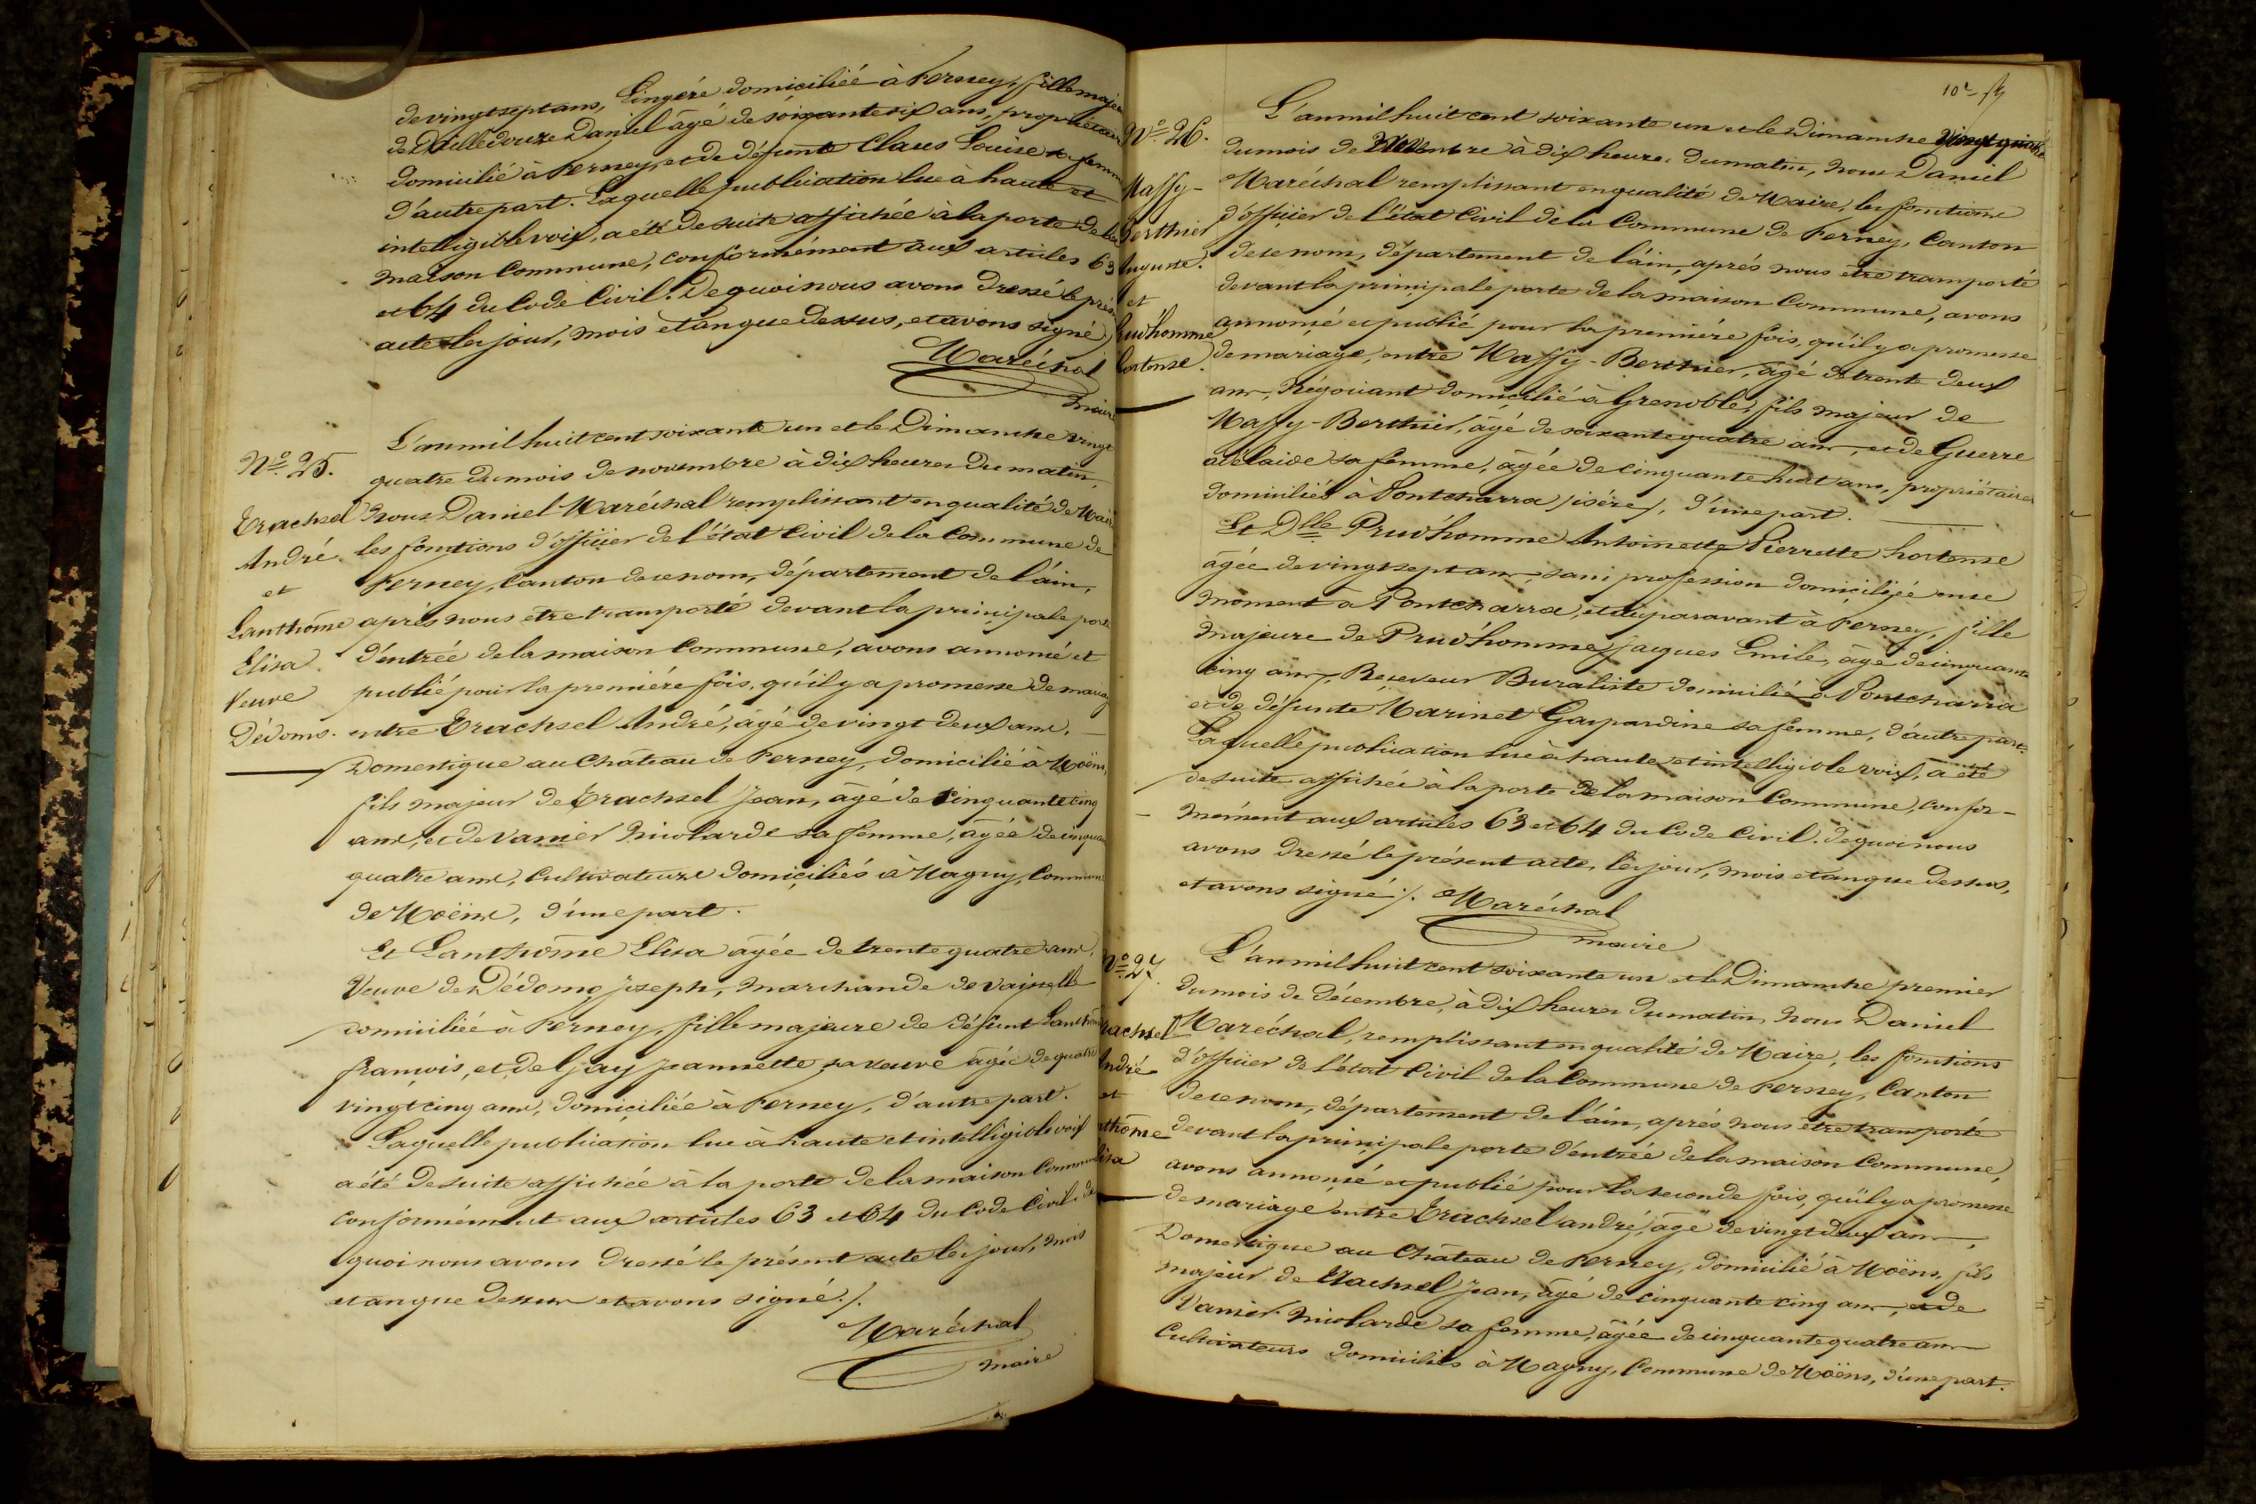 de vingt sept ans, Lingére domiciliée à Ferney, fille majeu
de Delledouze Daniel âgé de soixante six ans, propriétaire
domicilié à Ferney, et de défunte Claus Louise sa femme
d'autre part. Laquelle publication lue à haute et
intelligible voix, a été de suite affichée à la porte de la
maison Commune, conformément aux articles 63
et 64 du Code Civil. De quoi nous avons dressé le prés
acte les jour, mois et an que dessus, et avons signé
Maréchal
maire
N.º 25.
Trachsel
André
et
Lanthôme
Elisa
Veuve
Dédomo.
L'an mil huit cent soixante un et le Dimanche vingt
quatre du mois de novembre à dix heures du matin,
nous Daniel Maréchal remplissant en qualité de Mair
les fonctions d'officier de l'état Civil de la Commune de
Ferney, Canton de ce nom, département de l'ain,
aprés nous être transporté devant la principale porte
d'entrée de la maison Commune, avons annoncé et
publié pour la première fois, qu'il y a promesse de mariag
entre Trachsel André, âgé de vingt deux ans,
Domestique au Château de Ferney, domicilié à Moëns,
fils majeur de Trachsel Jean, âgé de cinquante cinq
ans, et de Vanier Nicolarde sa femme, âgée de cinquan
quatre ans, Cultivateurs domiciliés à Magny, Commune
de Moëns, d'une part.
Et Lanthôme Elisa âgée de trente quatre ans,
Veuve de Dédomo Joseph, marchande de vaisselle
domiciliée à Ferney, fille majeure de défunt Lanthôm
françois, et de Gay Jeannette sa veuve âgée de quatre
vingt cinq ans, domiciliée à Ferney, d'autre part.
Laquelle publication lue à haute et intelligible voix
a été de suite affichée à la porte de la maison Commune
conformément aux articles 63 et 64 du Code Civil. de
quoi nous avons dressé le présent acte les jour, mois
et an que dessus et avons signé./.
Maréchal
maire
10e
N.º 26.
Maffy-
Berthier
Auguste.
et
Prud'homme
hortense.
L'an mil huit cent soixante un et le Dimanche vingt quatre
du mois de Novembre à dix heures du matin, nous Daniel
Maréchal remplissant en qualité de Maire, les fonctions
d'officier de l'état Civil de la Commune de Ferney, Canton
de ce nom, département de l'ain, aprés nous être transporté
devant la principale porte de la maison Commune, avons
annoncé et publié pour la première fois, qu'il y a promesse
de mariage, entre Maffy-Berthier, âgé de trente deux
ans, Négociant domicilié à Grenoble, fils majeur de
Maffy-Berthier, âgé de soixante quatre ans, et de Guerre
adélaide sa femme, âgée de cinquante huit ans, propriétaires
domiciliés à Pontcharra (isére), d'une part.
Et Dlle Prud'homme Antoinette Pierrette hortense
âgée de vingt sept ans, sans profession domiciliée en ce
moment à Pontcharra, et auparavant à Ferney, fille
majeure de Prud'homme Jacques Emile, âgé de cinquante
cinq ans, Receveur Buraliste domicilié à Pontcharra
et de défunte Marinet Gaspardine sa femme, d'autre part.
Laquelle publication lue à haute et intelligible voix, a été
de suite affichée à la porte de la maison Commune, confor-
mément aux articles 63 et 64 du Code Civil. de quoi nous
avons dressé le présent acte, les jour, mois et an que dessus,
et avons signé ./. Maréchal
maire
N.º 27.
achsel
André
et
thôme
lisa
L'an mil huit cent soixante un et le Dimanche premier
du mois de décembre, à dix heures du matin, nous Daniel
Maréchal, remplissant en qualité de Maire, les fonctions
d'officier de l'état Civil de la Commune de Ferney, Canton
de ce nom, département de l'ain, aprés nous être transporté
devant la principale porte d'entrée de la maison Commune,
avons annoncé et publié pour la seconde fois, qu'il y a promesse
de mariage entre Trachsel andré, âgé de vingt deux ans,
Domestique au Château de Ferney, domicilié à Moëns, fils
majeur de Trachsel Jean, âgé de cinquante cinq ans, et de
Vanier Nicolarde sa femme, âgée de cinquante quatre ans
Cultivateurs domiciliés à Magny, Commune de Moëns, d'une part.